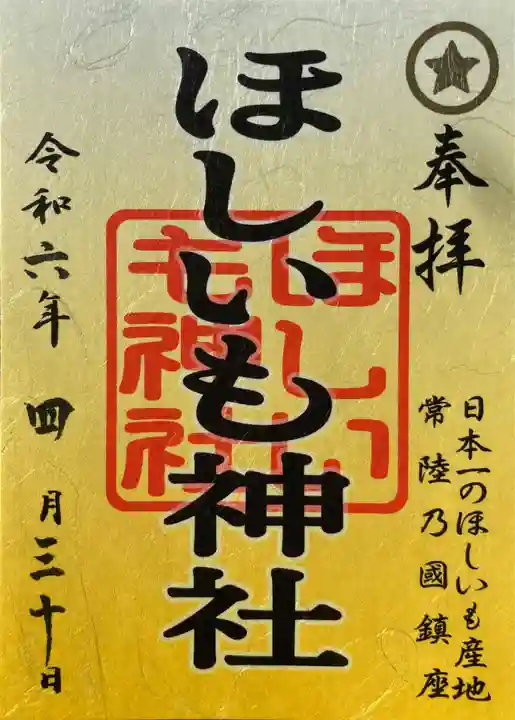 奉拝
日本一のほしいも産地
常陸乃國鎮座
ほしいも神社
ほしい
も神社
令和六年四月三十日